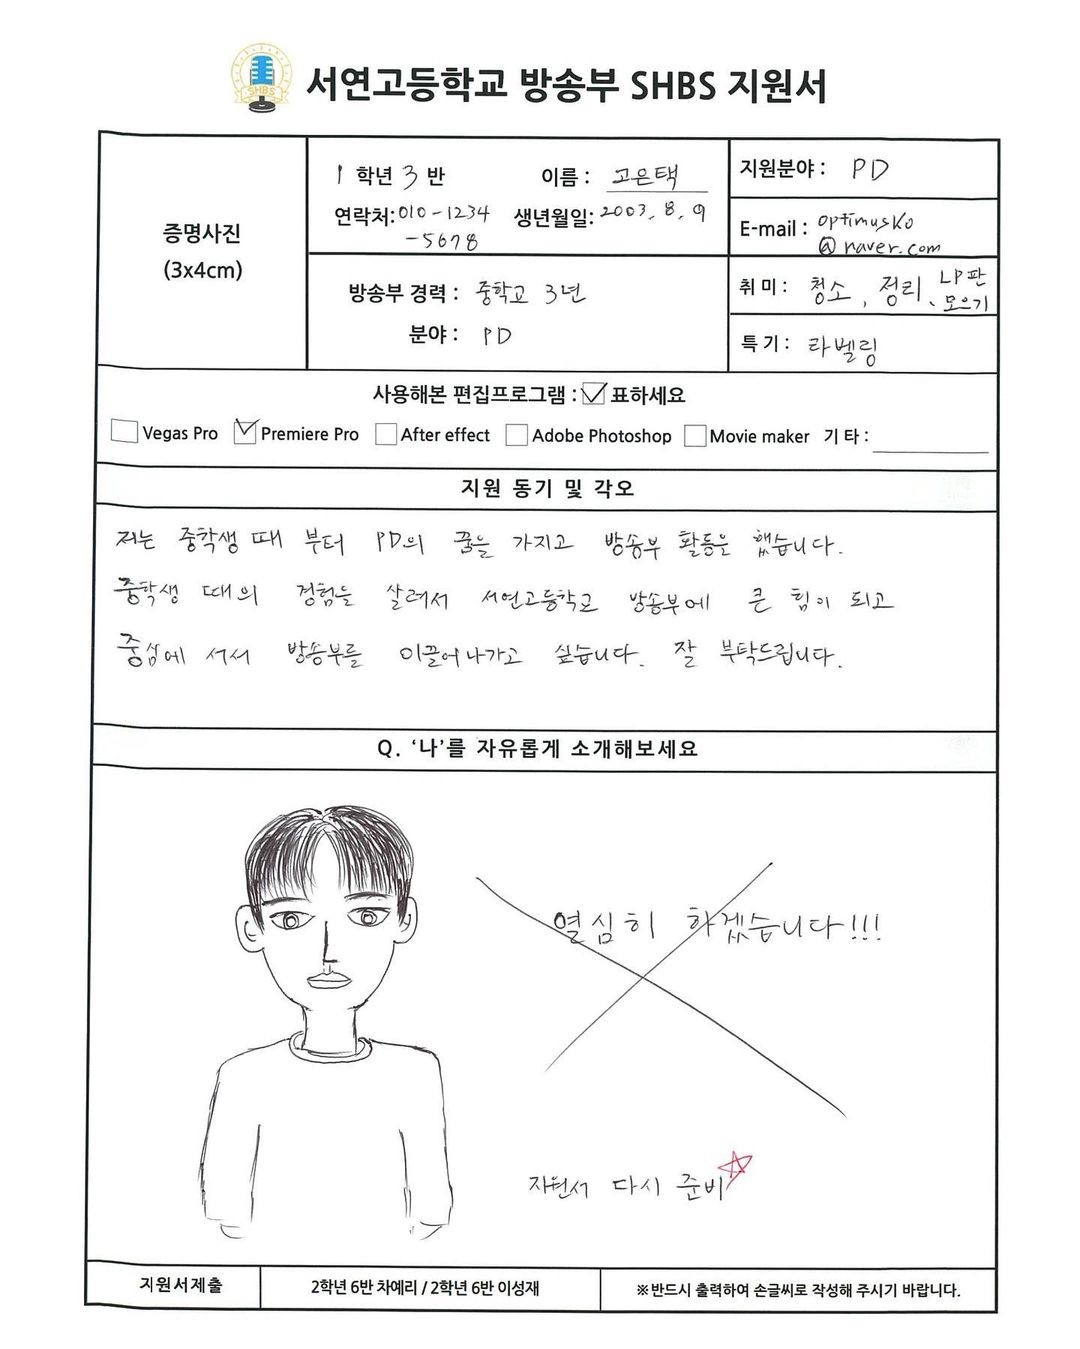 SHBS
서연고등학교 방송부 SHBS 지원서
증명사진
(3x4cm)
1 학년 3 반 이름 : 고은택
연락처: 010-1234
-5678
생년월일: 2003. 8. 9
방송부 경력 : 중학교 3년
분야 : PD
지원분야 : PD
E-mail : optimusko
@naver.com
취 미 : 청소, 정리, LP판
모으기
특 기 : 라벨링
사용해본 편집프로그램 : 표하세요
Vegas Pro Premiere Pro After effect Adobe Photoshop Movie maker 기 타 :
지원 동기 및 각오
저는 중학생 때 부터 PD의 꿈을 가지고 방송부 활동을 했습니다.
중학생 때의 경험을 살려서 서연고등학교 방송부에 큰 힘이 되고
중심에 서서 방송부를 이끌어나가고 싶습니다. 잘 부탁드립니다.
Q. ‘나’를 자유롭게 소개해보세요
열심히 하겠습니다!!!
지원서 다시 준비
지원서제출
2학년 6반 차예리 / 2학년 6반 이성재
※반드시 출력하여 손글씨로 작성해 주시기 바랍니다.